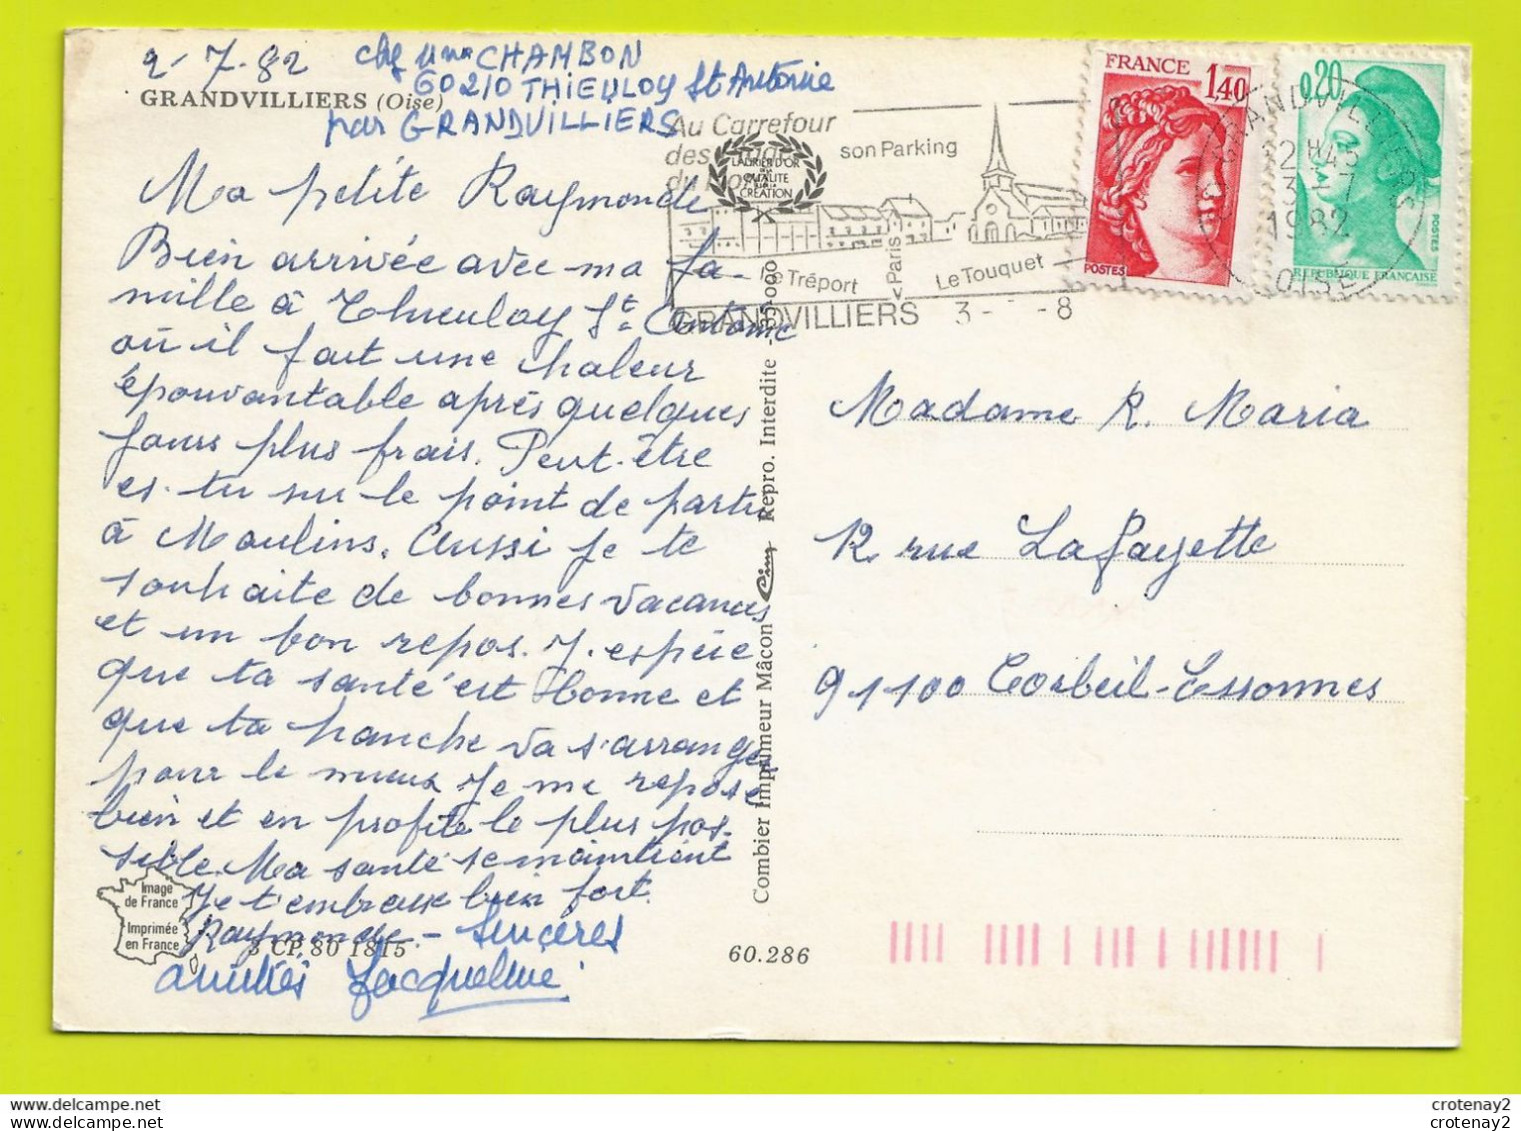 2-7-82
chez Mme CHAMBON
60210 THIEULOY St Antoine
par GRANDVILLIERS
GRANDVILLIERS (Oise)
Ma petite Raymonde
Bien arrivée avec ma fa-
mille à Thieuloy St. Antoine
où il fait une chaleur
épouvantable après quelques
jours plus frais. Peut-être
es-tu sur le point de partir
à Moulins. Aussi je te
souhaite de bonnes vacances
et un bon repos. J'espère
que ta santé est bonne et
que ta hanche va s'arranger
pour le mieux. Je me repose
bien et en profite le plus pos-
sible. Ma santé se maintient
Je t'embrasse bien fort.
Raymonde - Sincères
amitiés Jacqueline
Image
de France
Imprimée
en France
3 CP 80 1815
60.286
Combier Imprimeur Mâcon Cim Repro. Interdite - 35-000
LAURIER D'OR
DE LA
QUALITE
SUR LA
CREATION
Au Carrefour
des
du
son Parking
Le Tréport
<Paris
Le Touquet
GRANDVILLIERS 3- -8
FRANCE 1,40
POSTES
0,20
POSTES
REPUBLIQUE FRANÇAISE
GRANDVILLIERS
12H45
3-7
1982
OISE
Madame R. Maria
12 rue Lafayette
91100 Corbeil-Essonnes
crotenay2
crotenay2
crotenay2
crotenay2